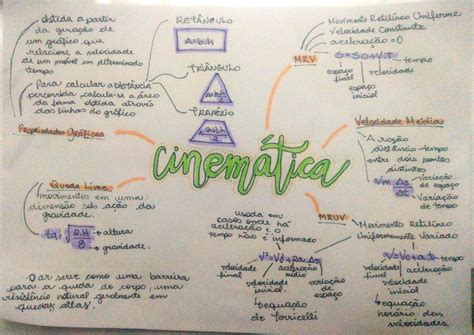 obtida a partir
da geração de
um gráfico que
relacione a velocidade
de um móvel em determinado
tempo
Para calcular a DISTÂNCIA
percorrida, calcula-se a área
da forma obtida através
das linhas do gráfico
Propriedades Gráficas
RETÂNGULO
A=b.h
TRIÂNGULO
A=b.h
2
TRAPÉZIO
cinemática
MRV
Movimento Retilíneo Uniforme
Velocidade Constante
aceleração = 0
S=S0+V.t
tempo
espaço
final
velocidade
espaço
inicial
Velocidade Média
A razão
distância-tempo
entre dois pontos
distintos
Vm = ΔS
Δt
Variação
de espaço
Variação
de tempo
MRUV
Movimento Retilíneo
Uniformemente Variado
V=V0+a.t
velocidade
final
tempo
aceleração
velocidade
inicial
equação
horária das
velocidades.
usada em
casos onde há
aceleração e o
tempo não é informado
V²=V0²+2a.ΔS
velocidade
final
aceleração
média
velocidade
inicial
variação
de
espaço
equação
de Torricelli
Queda Livre
movimentos em uma
dimensão sob ação da
gravidade.
2.H
g
altura
gravidade.
O ar serve como uma barreira
para a queda do corpo, uma
resistência natural geralmente em
quedas altas.